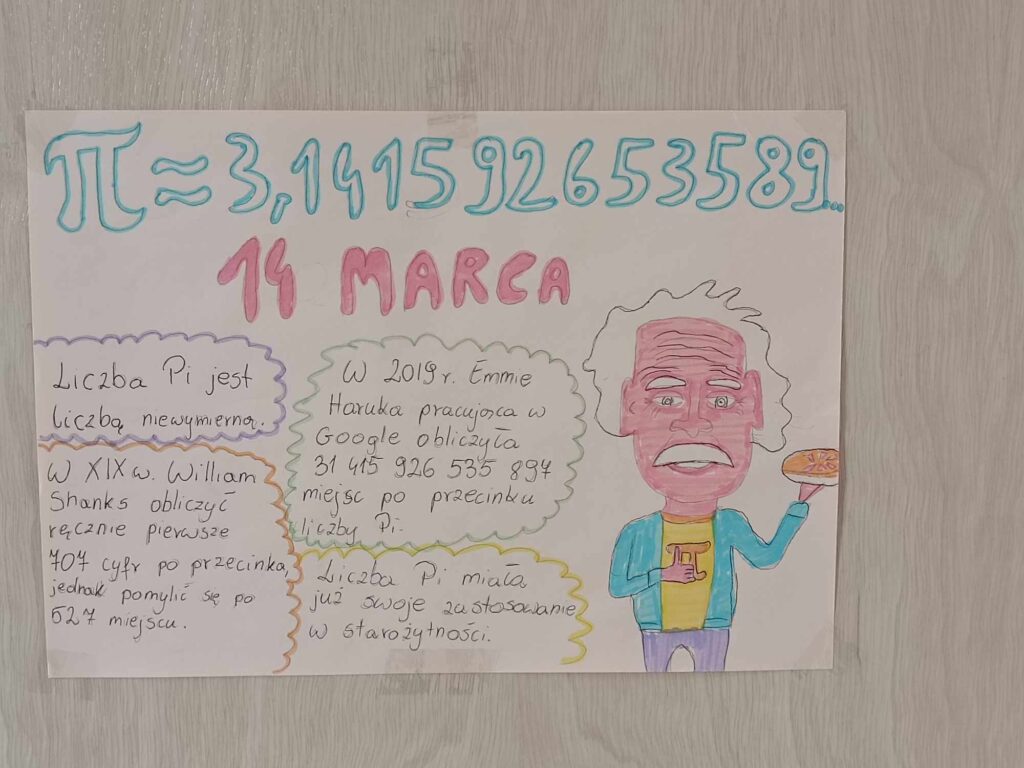 π≈3,141592653589...
14 MARCA
Liczba Pi jest
liczbą niewymierną.
W XIX w. William
Shanks obliczył
ręcznie pierwsze
707 cyfr po przecinka,
jednak pomylił się po
527 miejscu.
W 2019 r. Emmie
Haruka pracująca w
Google obliczyła
31 415 926 535 897
miejsc po przecinku
liczby Pi.
Liczba Pi miała
już swoje zastosowanie
w starożytności.
π